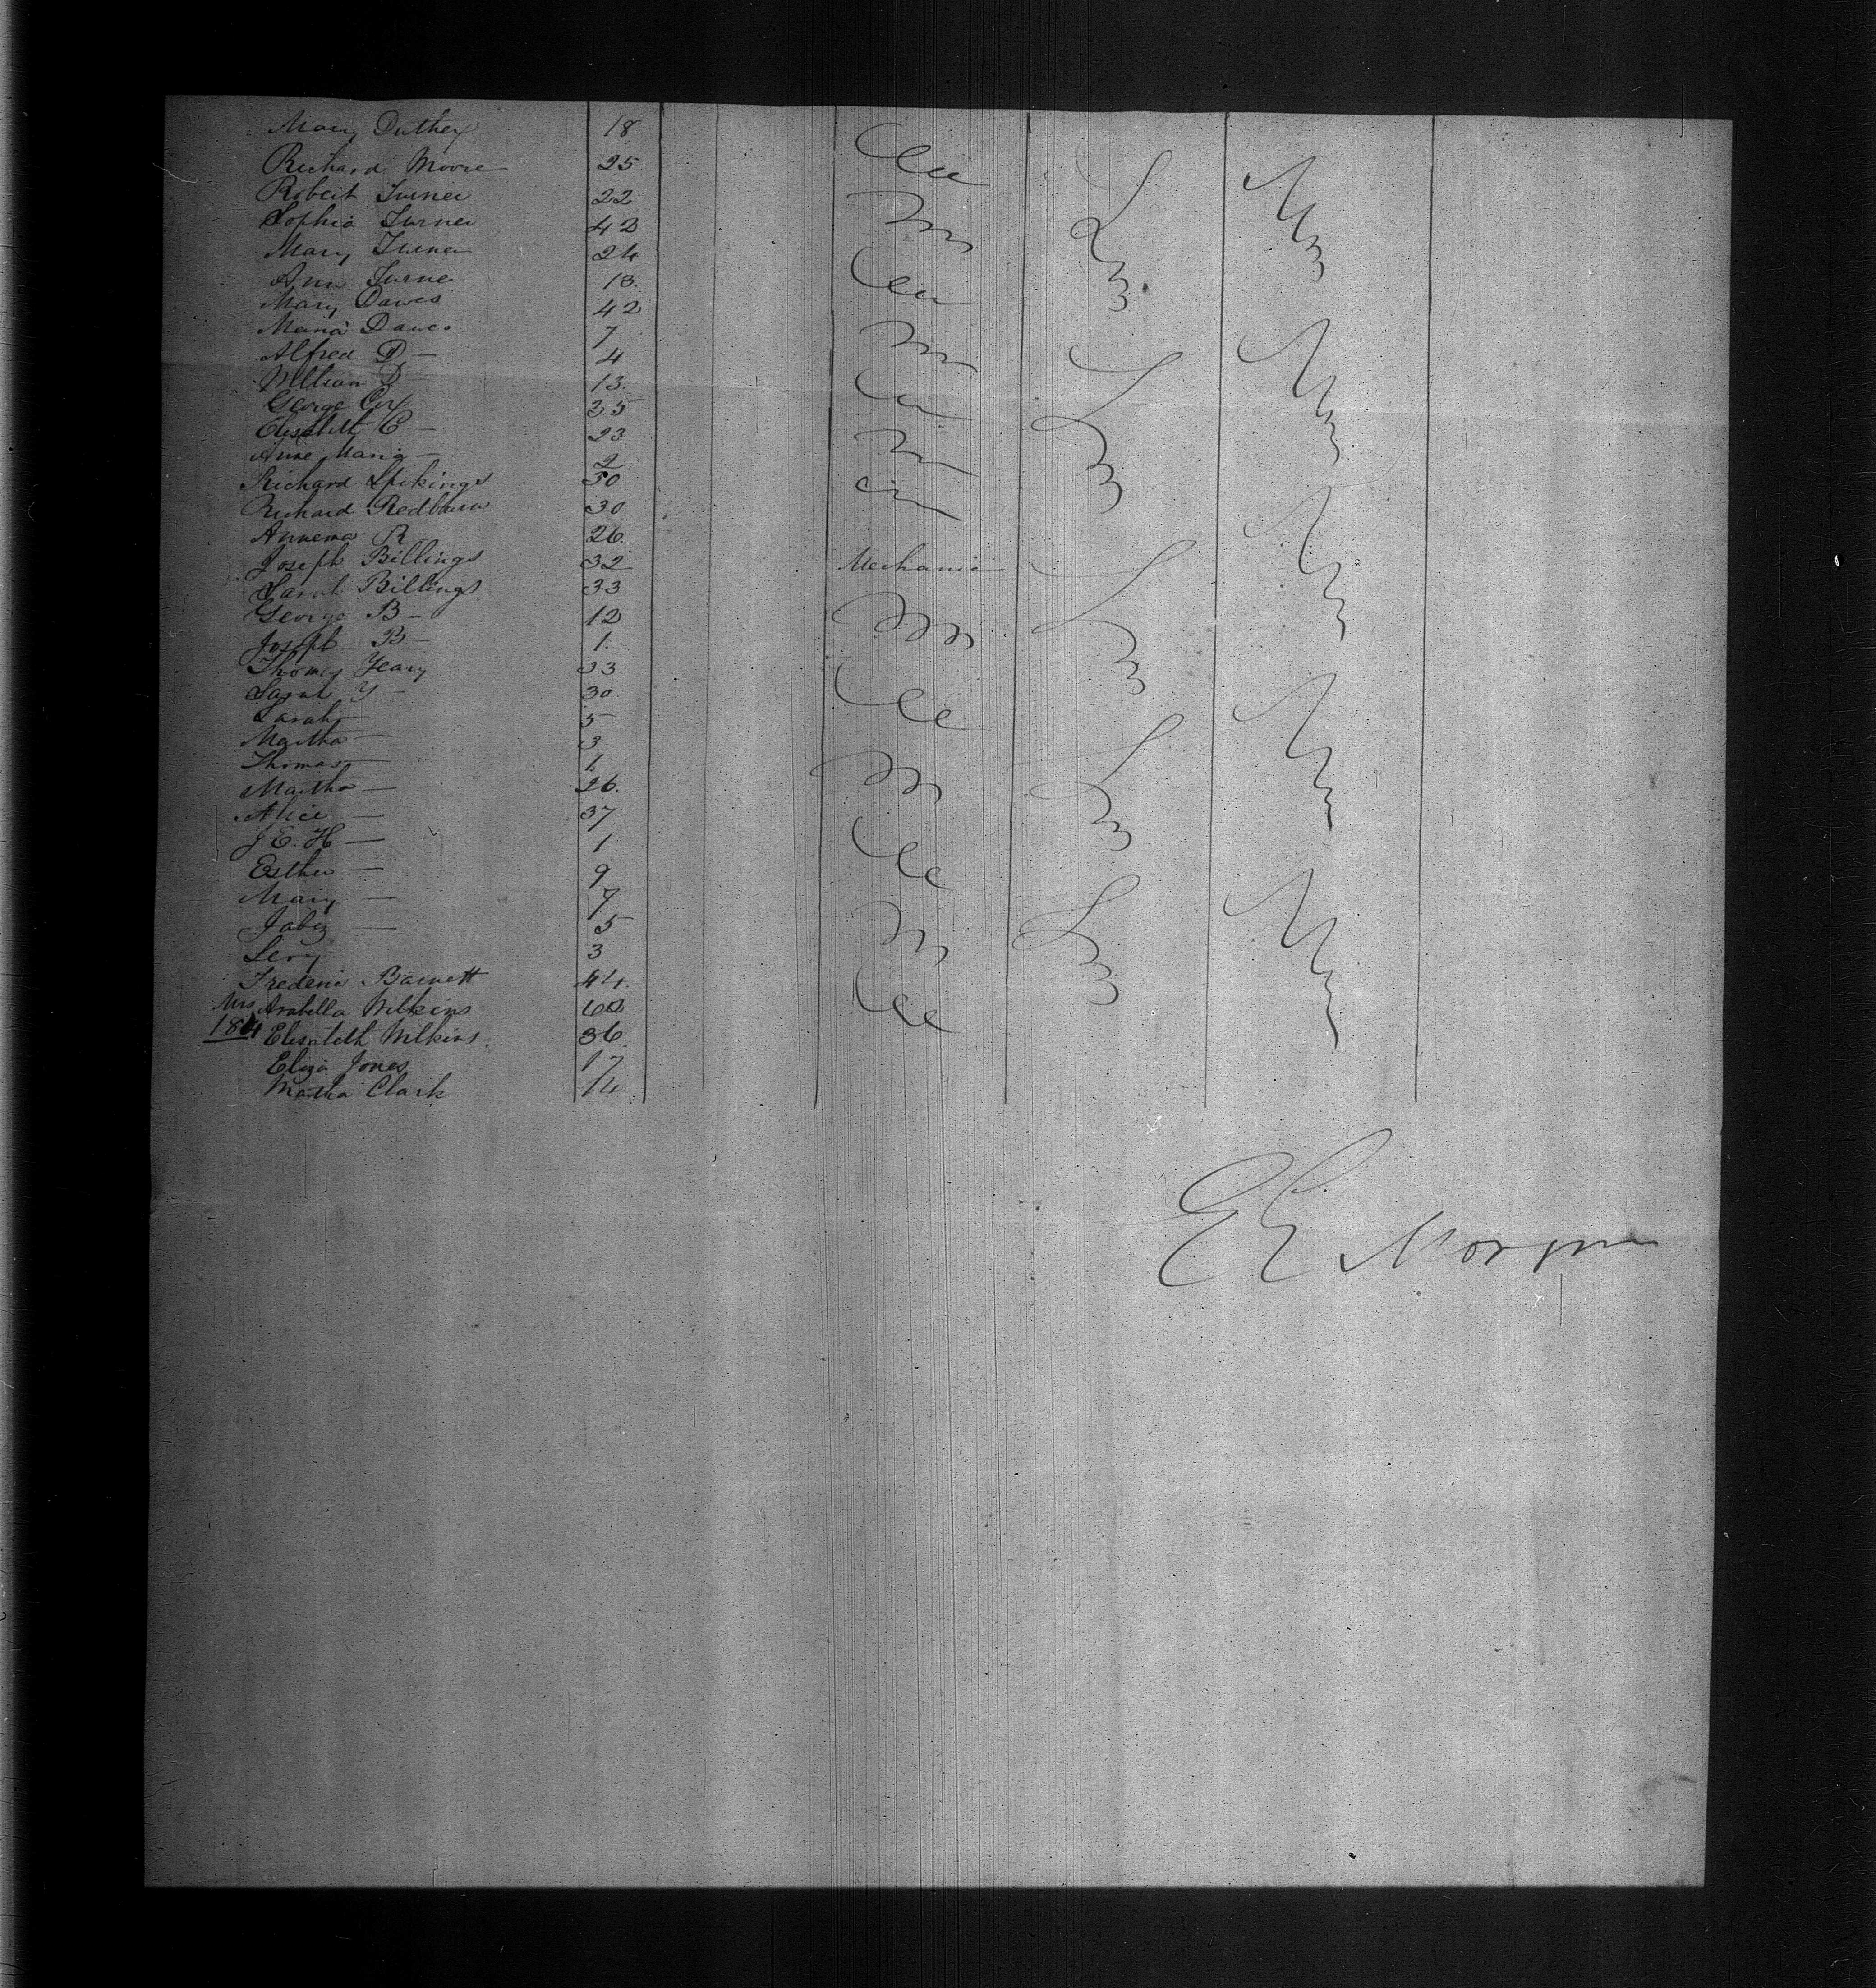 Mary Duthey 18
Richard Moore 25
Robert Turner 22
Sophia Turner 42
Mary Turner 24
Ann Turner 18.
Mary Dawes 42
Maria Dawes 7
Alfred D— 4
William D— 13.
George Cox 35
Elisabeth C— 23
Anne Maria— 2
Richard Spikings 30
Richard Redbourn 30
Annema R 26.
Joseph Billings 32 Mechanic
Sarah Billings 33
George B— 12
Joseph B— 1.
Thomas Yeary 33
Sarah Y— 30
Sarah— 5
Martha— 3
Thomas— 1
Martha— 26.
Alice— 37
J E. H— 1
Esther— 9
Mary— 7
Jabez— 5
Levy 3
Frederic Barnett 44.
Mrs Arabella Wilkins 60
184 Elisabeth Wilkins. 36.
Eliza Jones 17
Martha Clark 14
E E Morgan